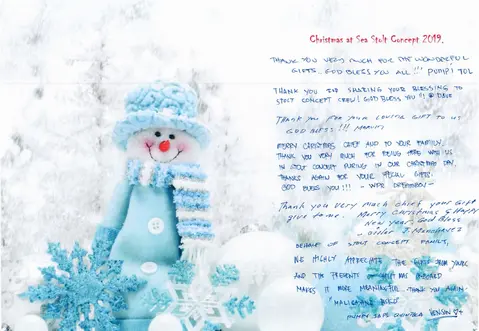 Christmas at Sea Stolt Concept 2019.
THANK YOU VERY MUCH FOR THE WONDERFUL
GIFTS. GOD BLESS YOU ALL!!!
THANK YOU SIR SHARING YOUR BLESSING TO
STOLT CONCEPT CREW! GOD BLESS YOU
Thank you for your loving gift to us
GOD BLESS!!!
MERRY CHRISTMAS CHIEF AND TO YOUR FAMILY.
THANK YOU VERY MUCH FOR BEING HERE WITH US
IN STOLT CONCEPT DURING IN OUR CHRISTMAS DAY.
THANKS AGAIN FOR YOUR SPECIAL GIFTS.
GOD BLESS YOU!!! - WPR
Thank you very much chief your Gift
give to me. Merry Christmas & Happy
New year, God Bless
- oiler J.
BEHALF OF STOLT CONCEPT FAMILY,
WE HIGHLY APPRECIATE THE
AND THE PRESENTS OF
MAKES IT MORE MEANINGFUL. THANK YOU AGAIN.